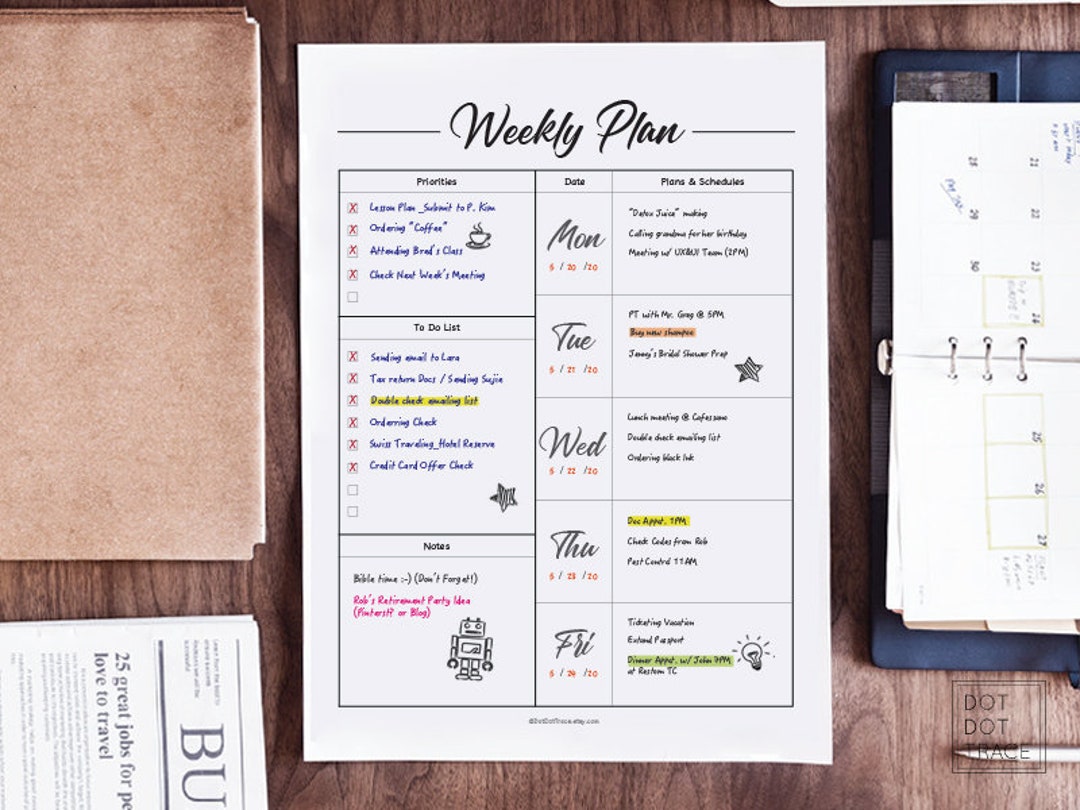 Weekly Plan
Priorities
Lesson Plan _Submit to P. Kim
Ordering "Coffee"
Attending Bred's Class
Check Next Week's Meeting
To Do List
Sending email to Lara
Tax return Docs / Sending Sujie
Double check emailing list
Orderring Check
Swiss Traveling_Hotel Reserve
Credit Card Offer Check
Notes
Bible time :-) (Don't Forget!)
Rob's Retirement Party Idea
(Pinterst? or Blog)
Date
Plans & Schedules
Mon
5 / 20 /20
"Detox Juice" making
Calling grandma for her birthday
Meeting w/ UX&UI Team (2PM)
Tue
5 / 21 /20
PT with Mr. Greg @ 5PM
Buy new shampoo
Jenny's Bridal Shower Prep
Wed
5 / 22 /20
Lunch meeting @ Cafessamo
Double check emailing list
Ordering black Ink
Thu
5 / 23 /20
Doc Appnt. 1PM
Check Codes from Rob
Pest Control 11AM
Fri
5 / 24 /20
Ticketing Vacation
Extend Passport
Dinner Appnt. w/ John 7PM
at Restom TC
©DotDotTrace.etsy.com
25 great jobs for pe
love to travel
BU
21
22
23
24
28
29
30
25
26
27
DOT
DOT
TRACE